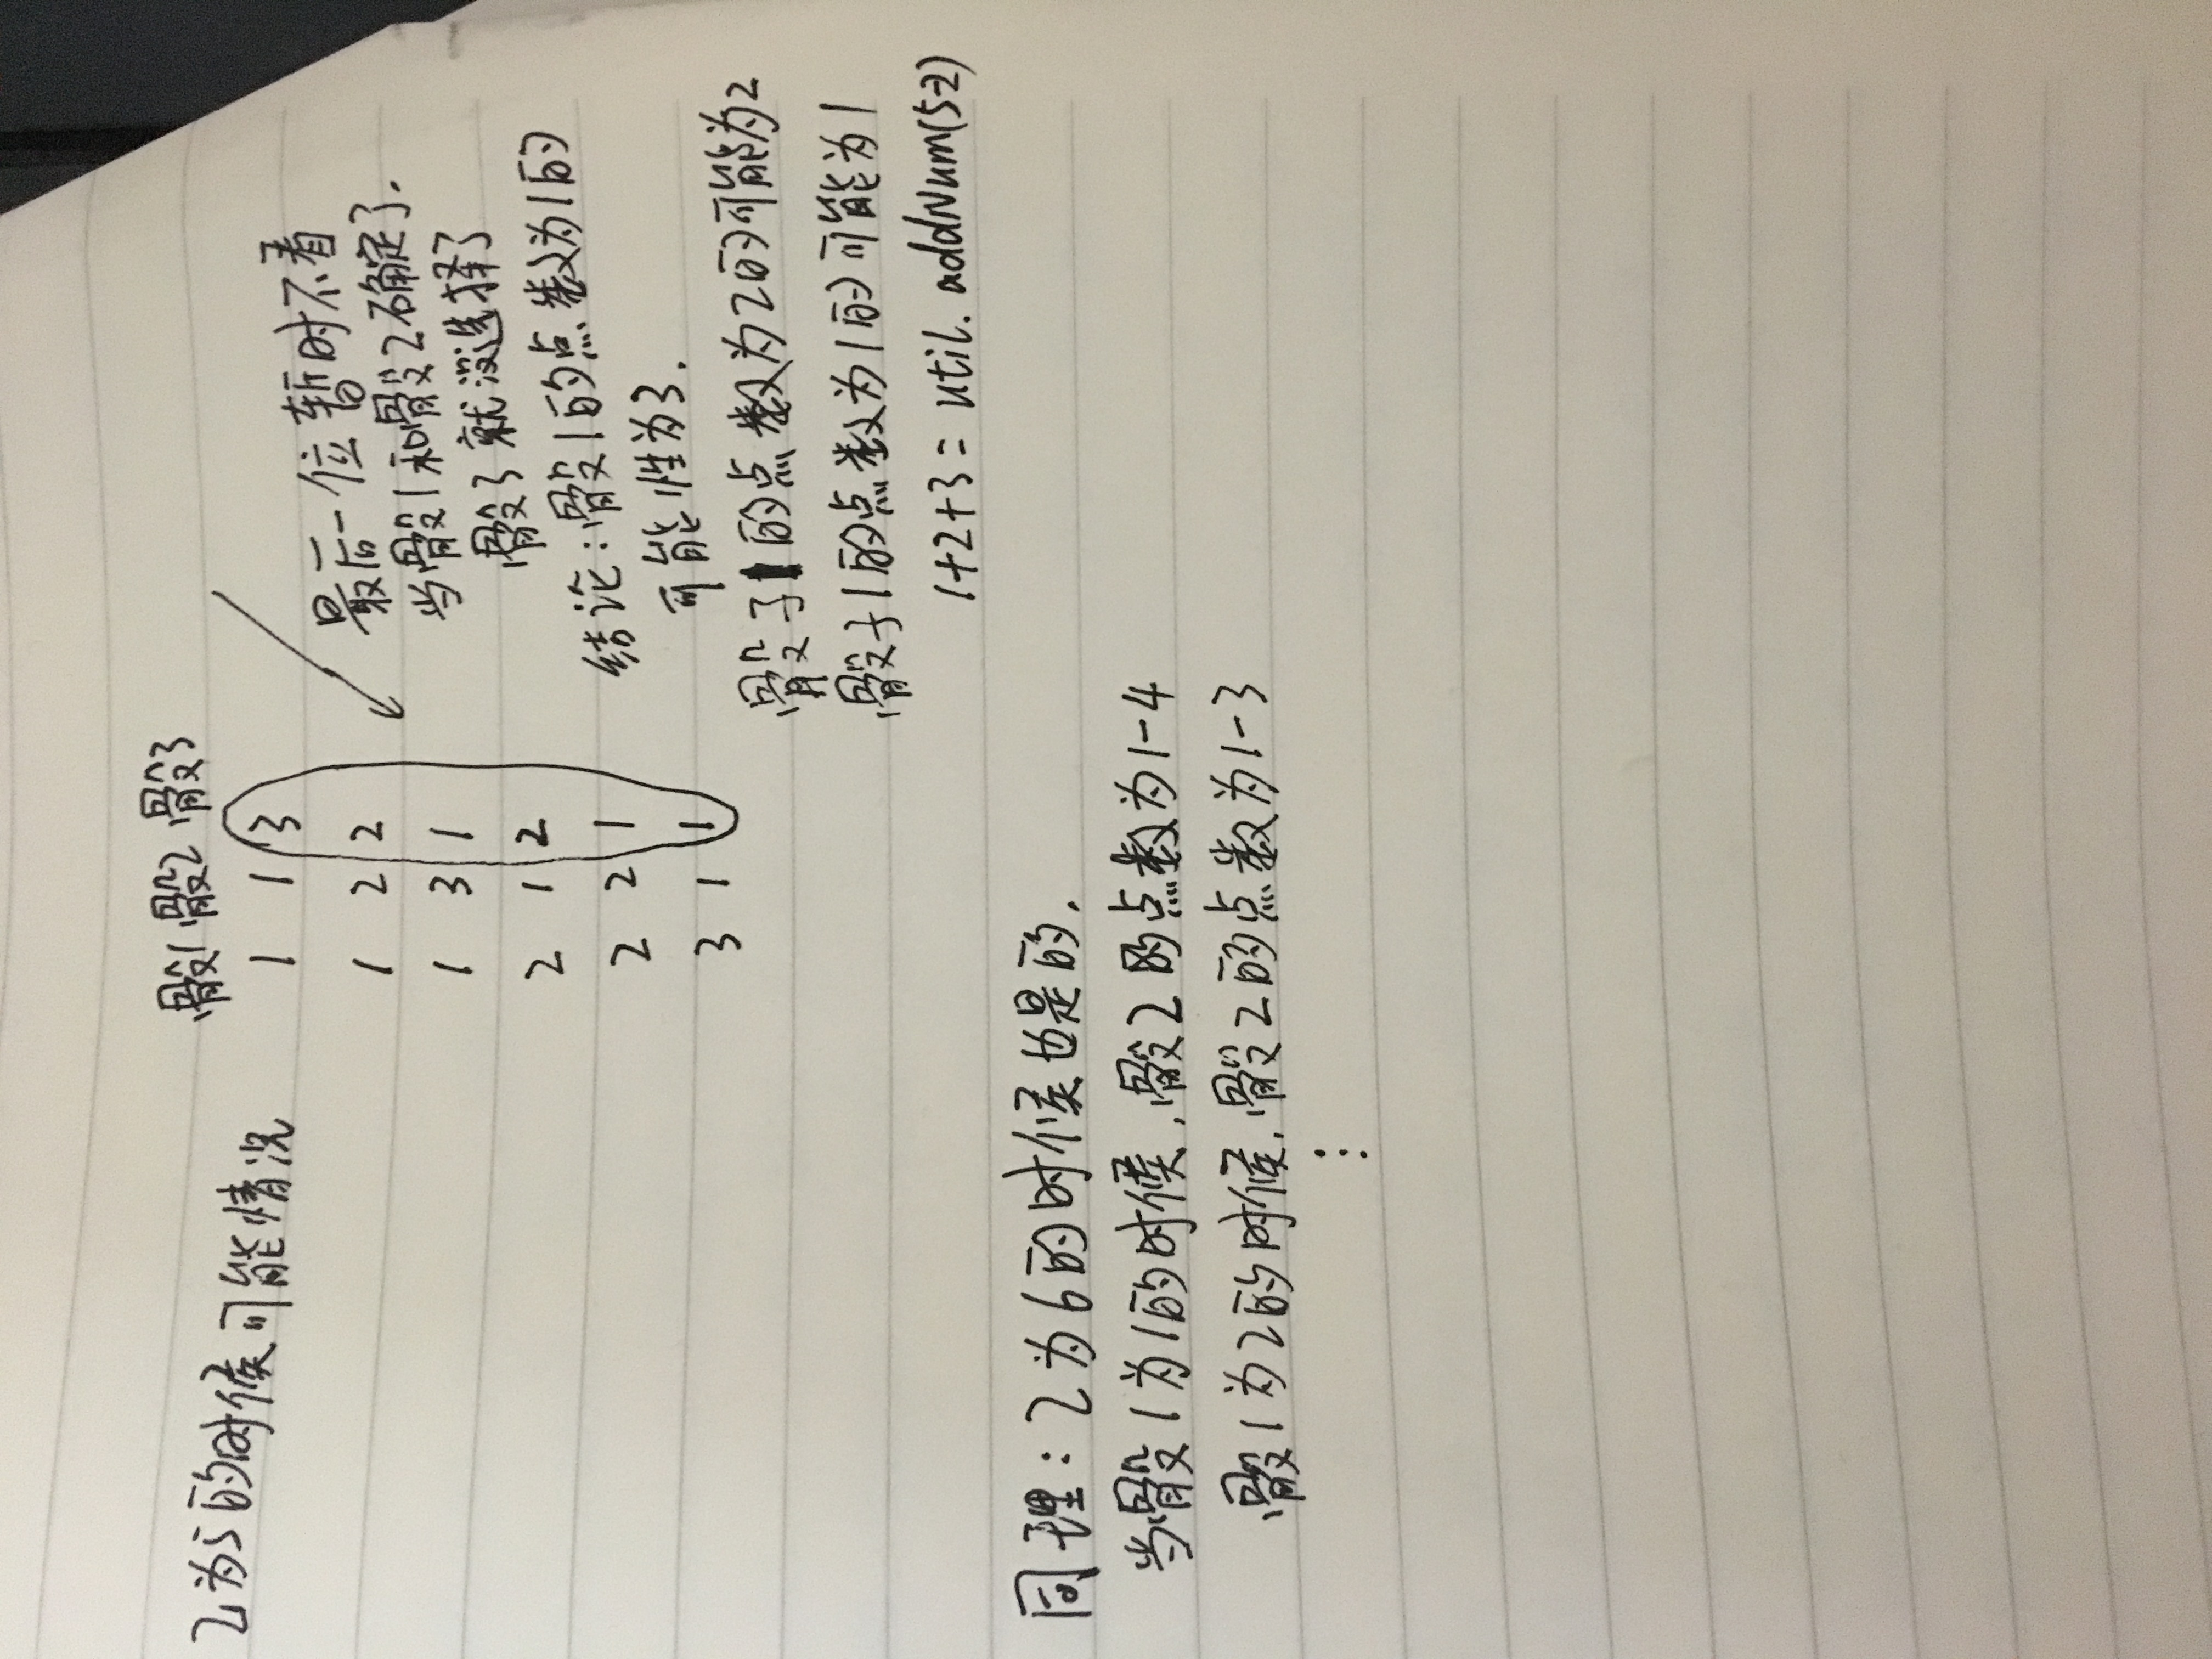 骰1 骰2 骰3
Z为5的时候可能情况
1 1 3
1 2 2
1 3 1
2 1 2
2 2 1
3 1 1
最后一位暂时不看
当骰1和骰2确定了.
骰3就没选择了
结论:骰1的点数为1的
可能性为3.
骰子1的点数为2的可能为2
骰子1的点数为1的可能为1
1+2+3=util.addNum(5-2)
同理:Z为6的时候也是的.
当骰1为1的时候,骰2的点数为1-4
骰1为2的时候,骰2的点数为1-3
⋮